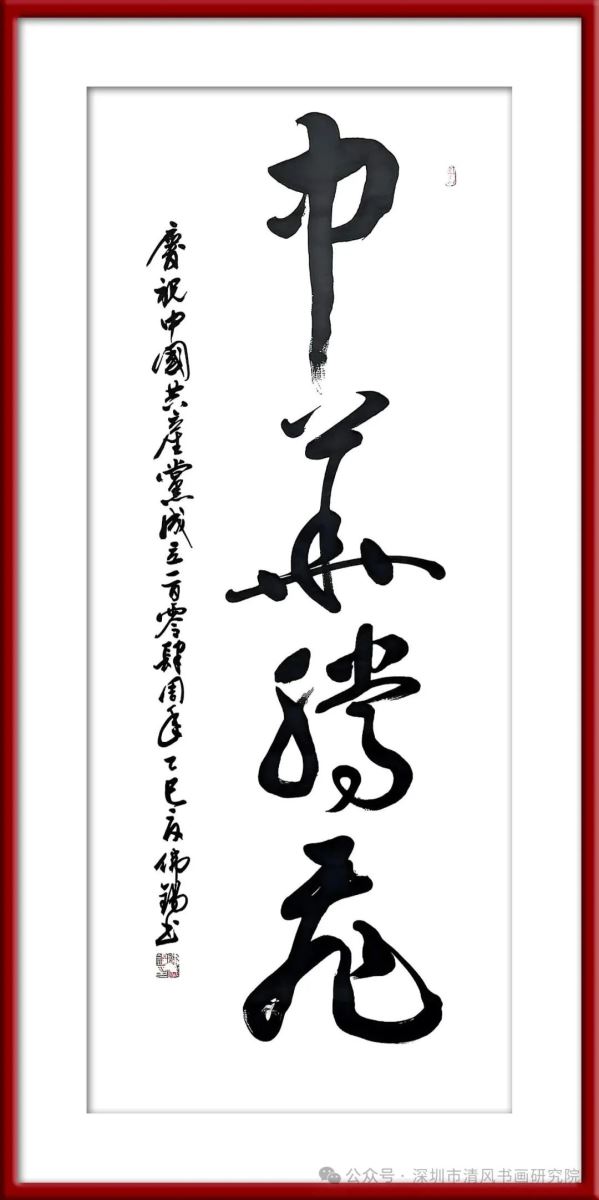 中華騰飛
慶祝中國共產黨成立一百零肆周年 乙巳夏 偉錫书
公众号·深圳市清风书画研究院